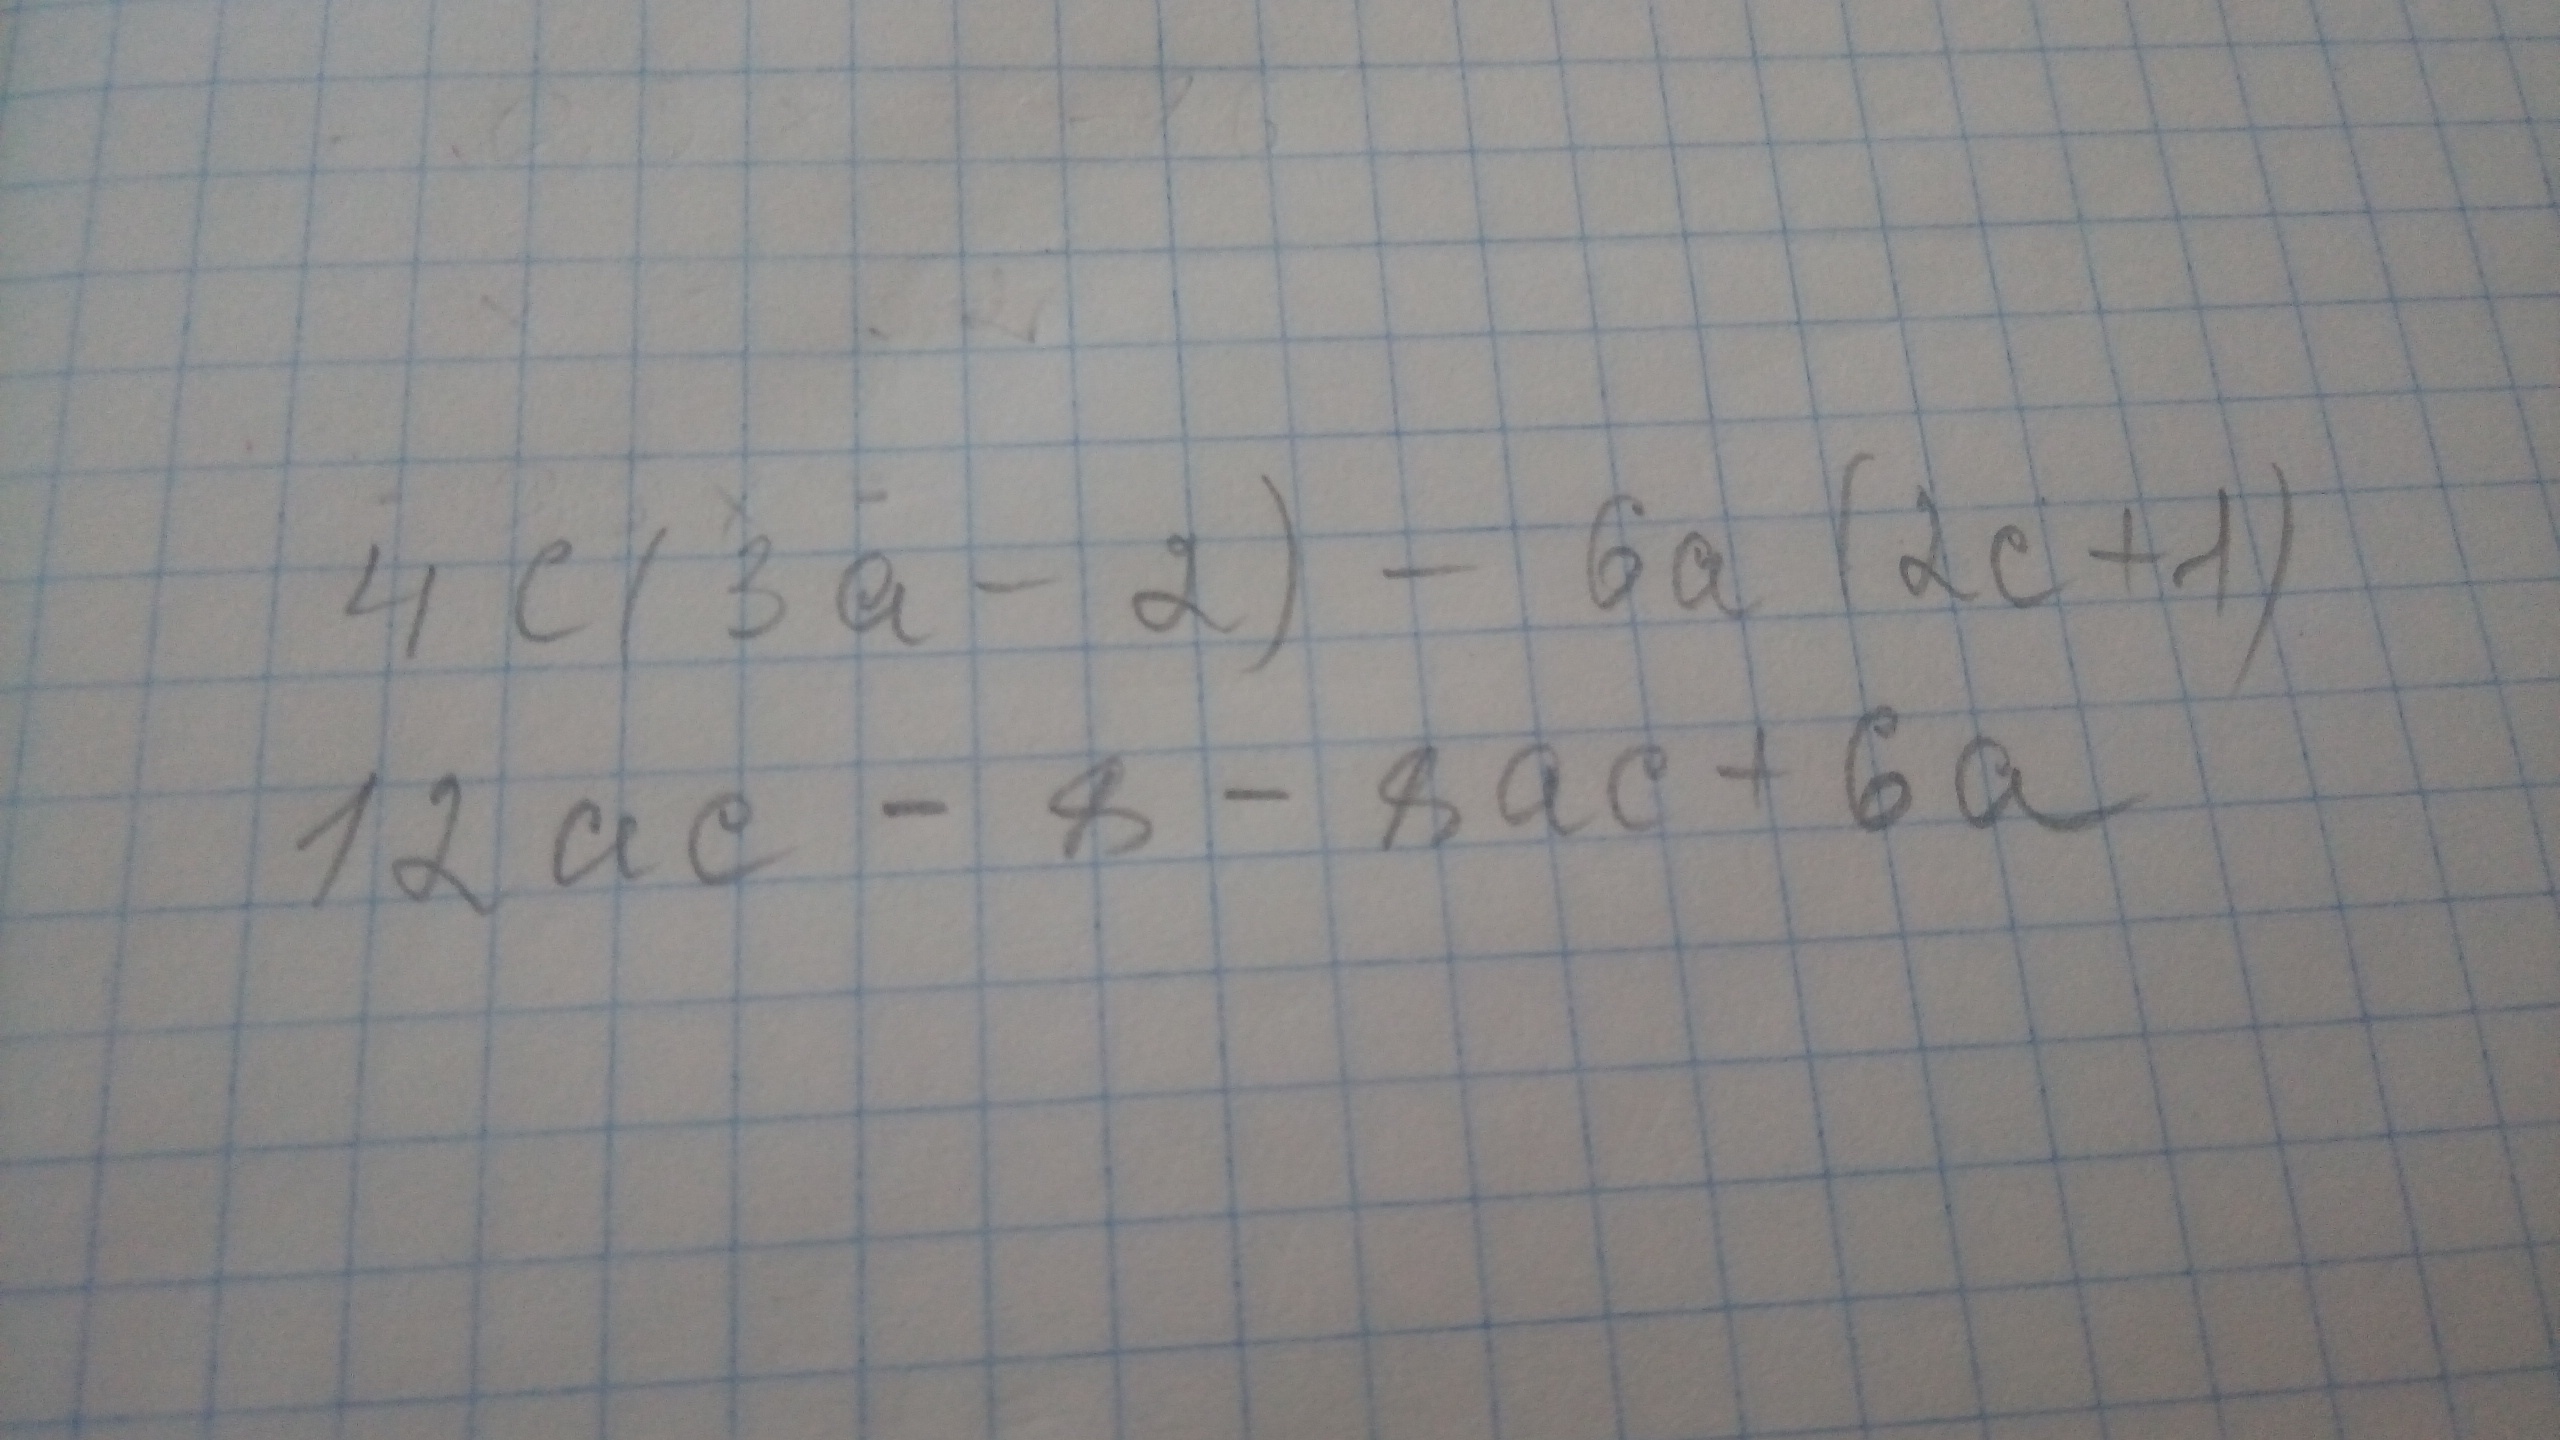 4c(3a - 2) - 6a(2c+1)
12ac - 8 - 8ac + 6a